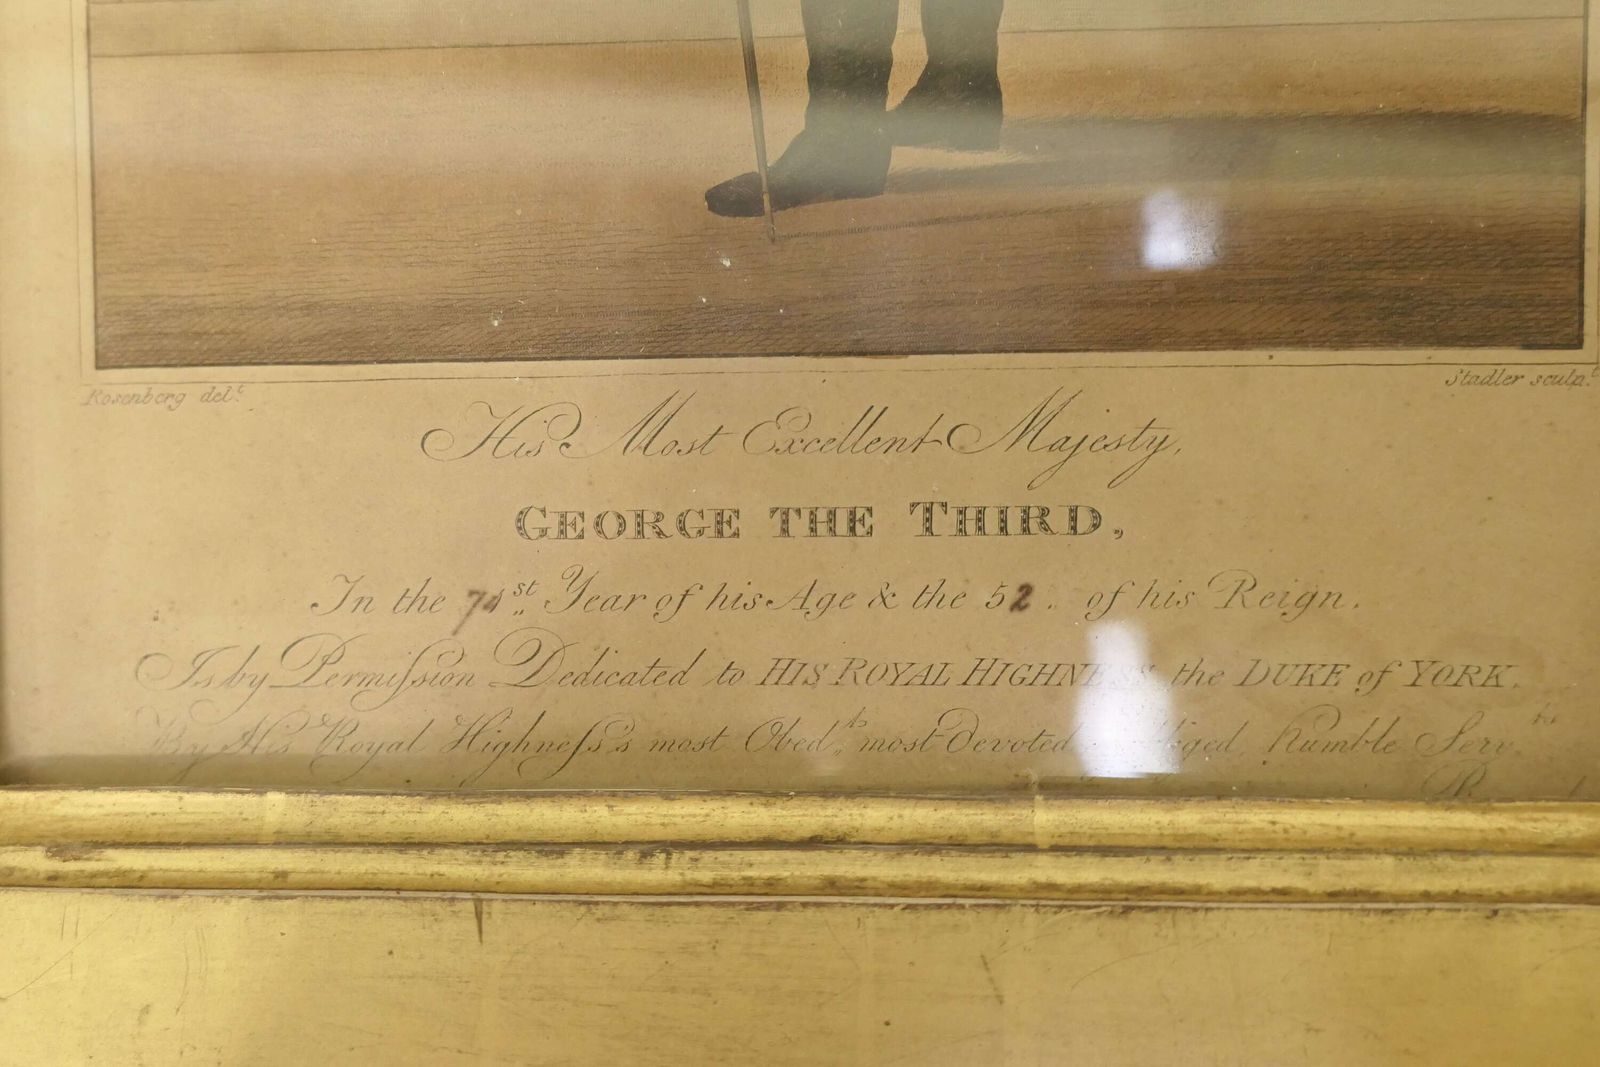 Rosenberg delt.
Stadler sculpt.
His Most Excellent Majesty,
GEORGE THE THIRD,
In the 71st Year of his Age & the 52. of his Reign.
Is by Permiſsion Dedicated to HIS ROYAL HIGHNESS the DUKE of YORK.
By His Royal Highneſs's most Obedt. most devoted humble Servts